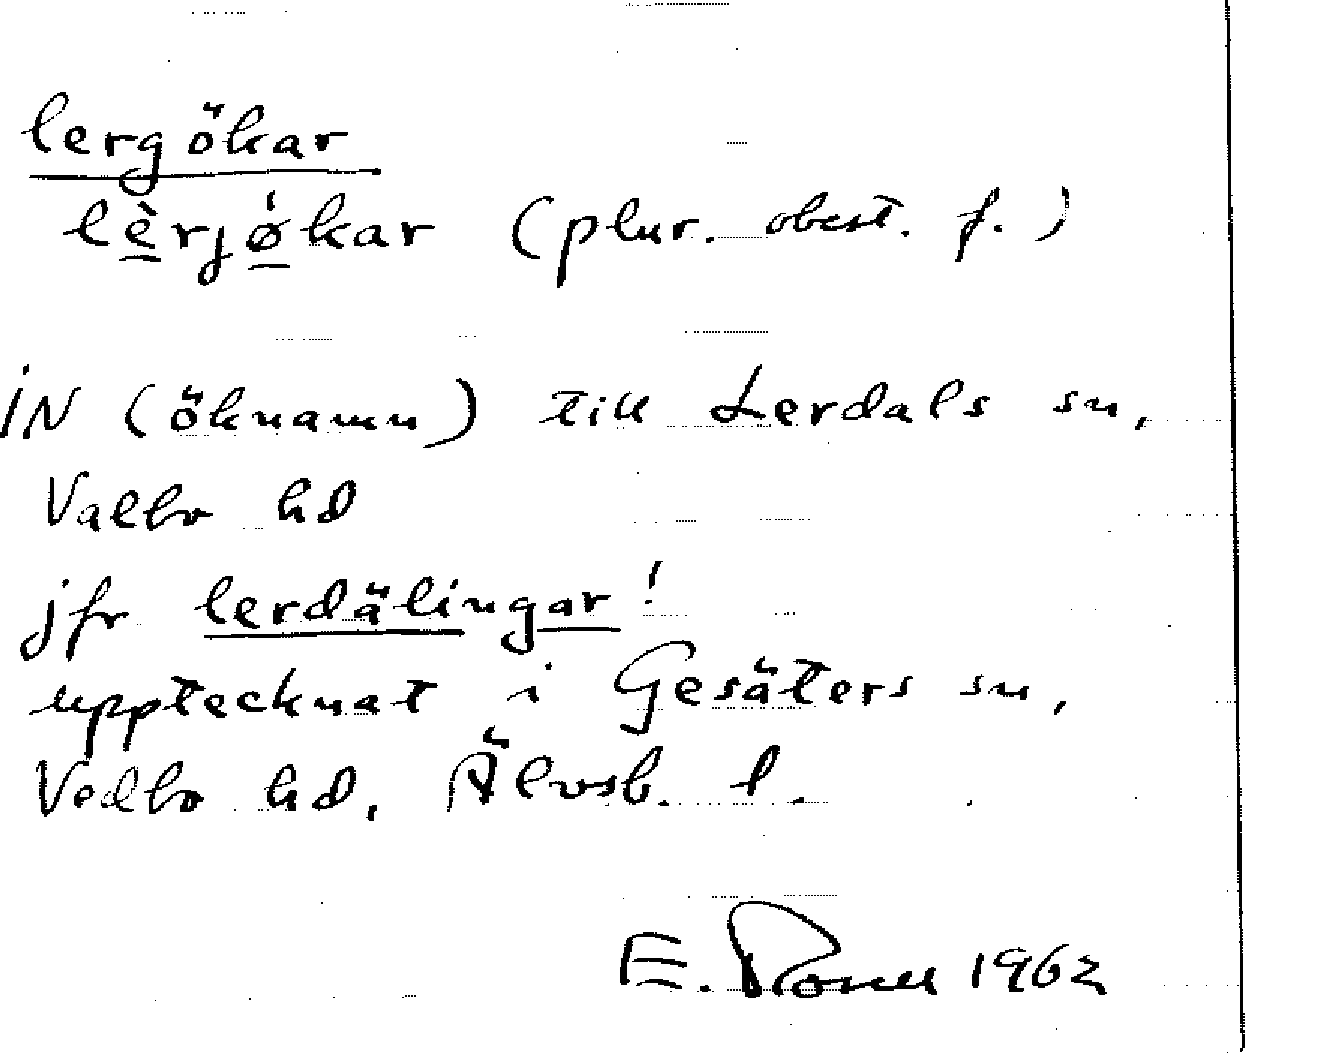 lergökar
lèrjø̀kar (plur. obest. f.)
IN (öknamn) till Lerdals sn,
Valbo hd
jfr lerdälingar!
upptecknat i Gesäters sn,
Vedbo hd, Älvsb. l.
E. 1962